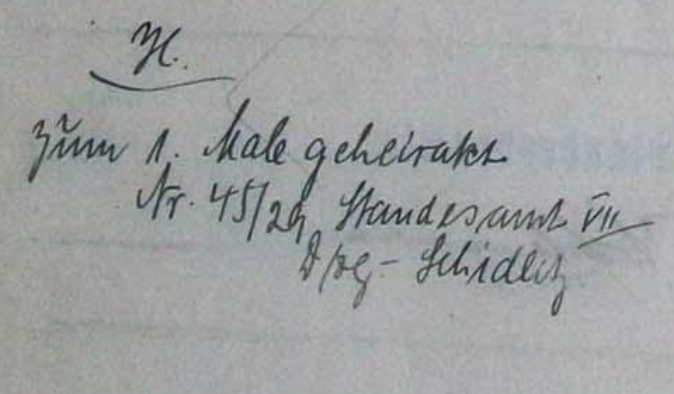 H.
zum 1. Male geheiratet
Nr. 45/29, Standesamt VII
Dzg-Schidlitz